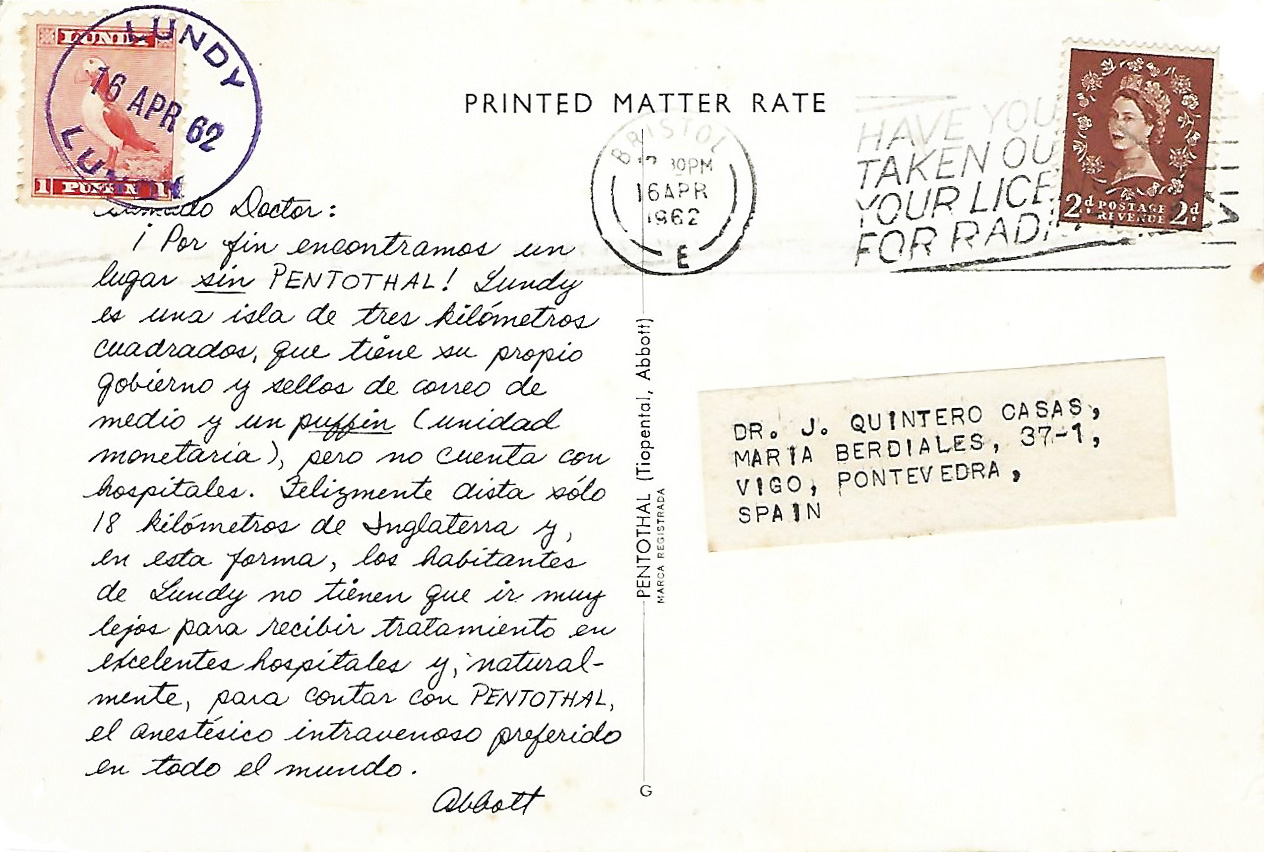 LUNDY
1 PUFFIN 1
LUNDY
16 APR 62
LUNDY
PRINTED MATTER RATE
BRISTOL
30PM
16 APR
1962
E
HAVE YOU
TAKEN OU
YOUR LICE
FOR RADI
2d POSTAGE REVENUE 2d
Doctor:
¡Por fin encontramos un
lugar sin PENTOTHAL! Lundy
es una isla de tres kilómetros
cuadrados, que tiene su propio
gobierno y sellos de correo de
medio y un puffin (unidad
monetaria), pero no cuenta con
hospitales. Felizmente dista sólo
18 kilómetros de Inglaterra y,
en esta forma, los habitantes
de Lundy no tienen que ir muy
lejos para recibir tratamiento en
excelentes hospitales y, natural-
mente, para contar con PENTOTHAL,
el anestésico intravenoso preferido
en todo el mundo.
Abbott
PENTOTHAL (Tiopental, Abbott)
MARCA REGISTRADA
G
DR. J. QUINTERO CASAS,
MARIA BERDIALES, 37-1,
VIGO, PONTEVEDRA,
SPAIN